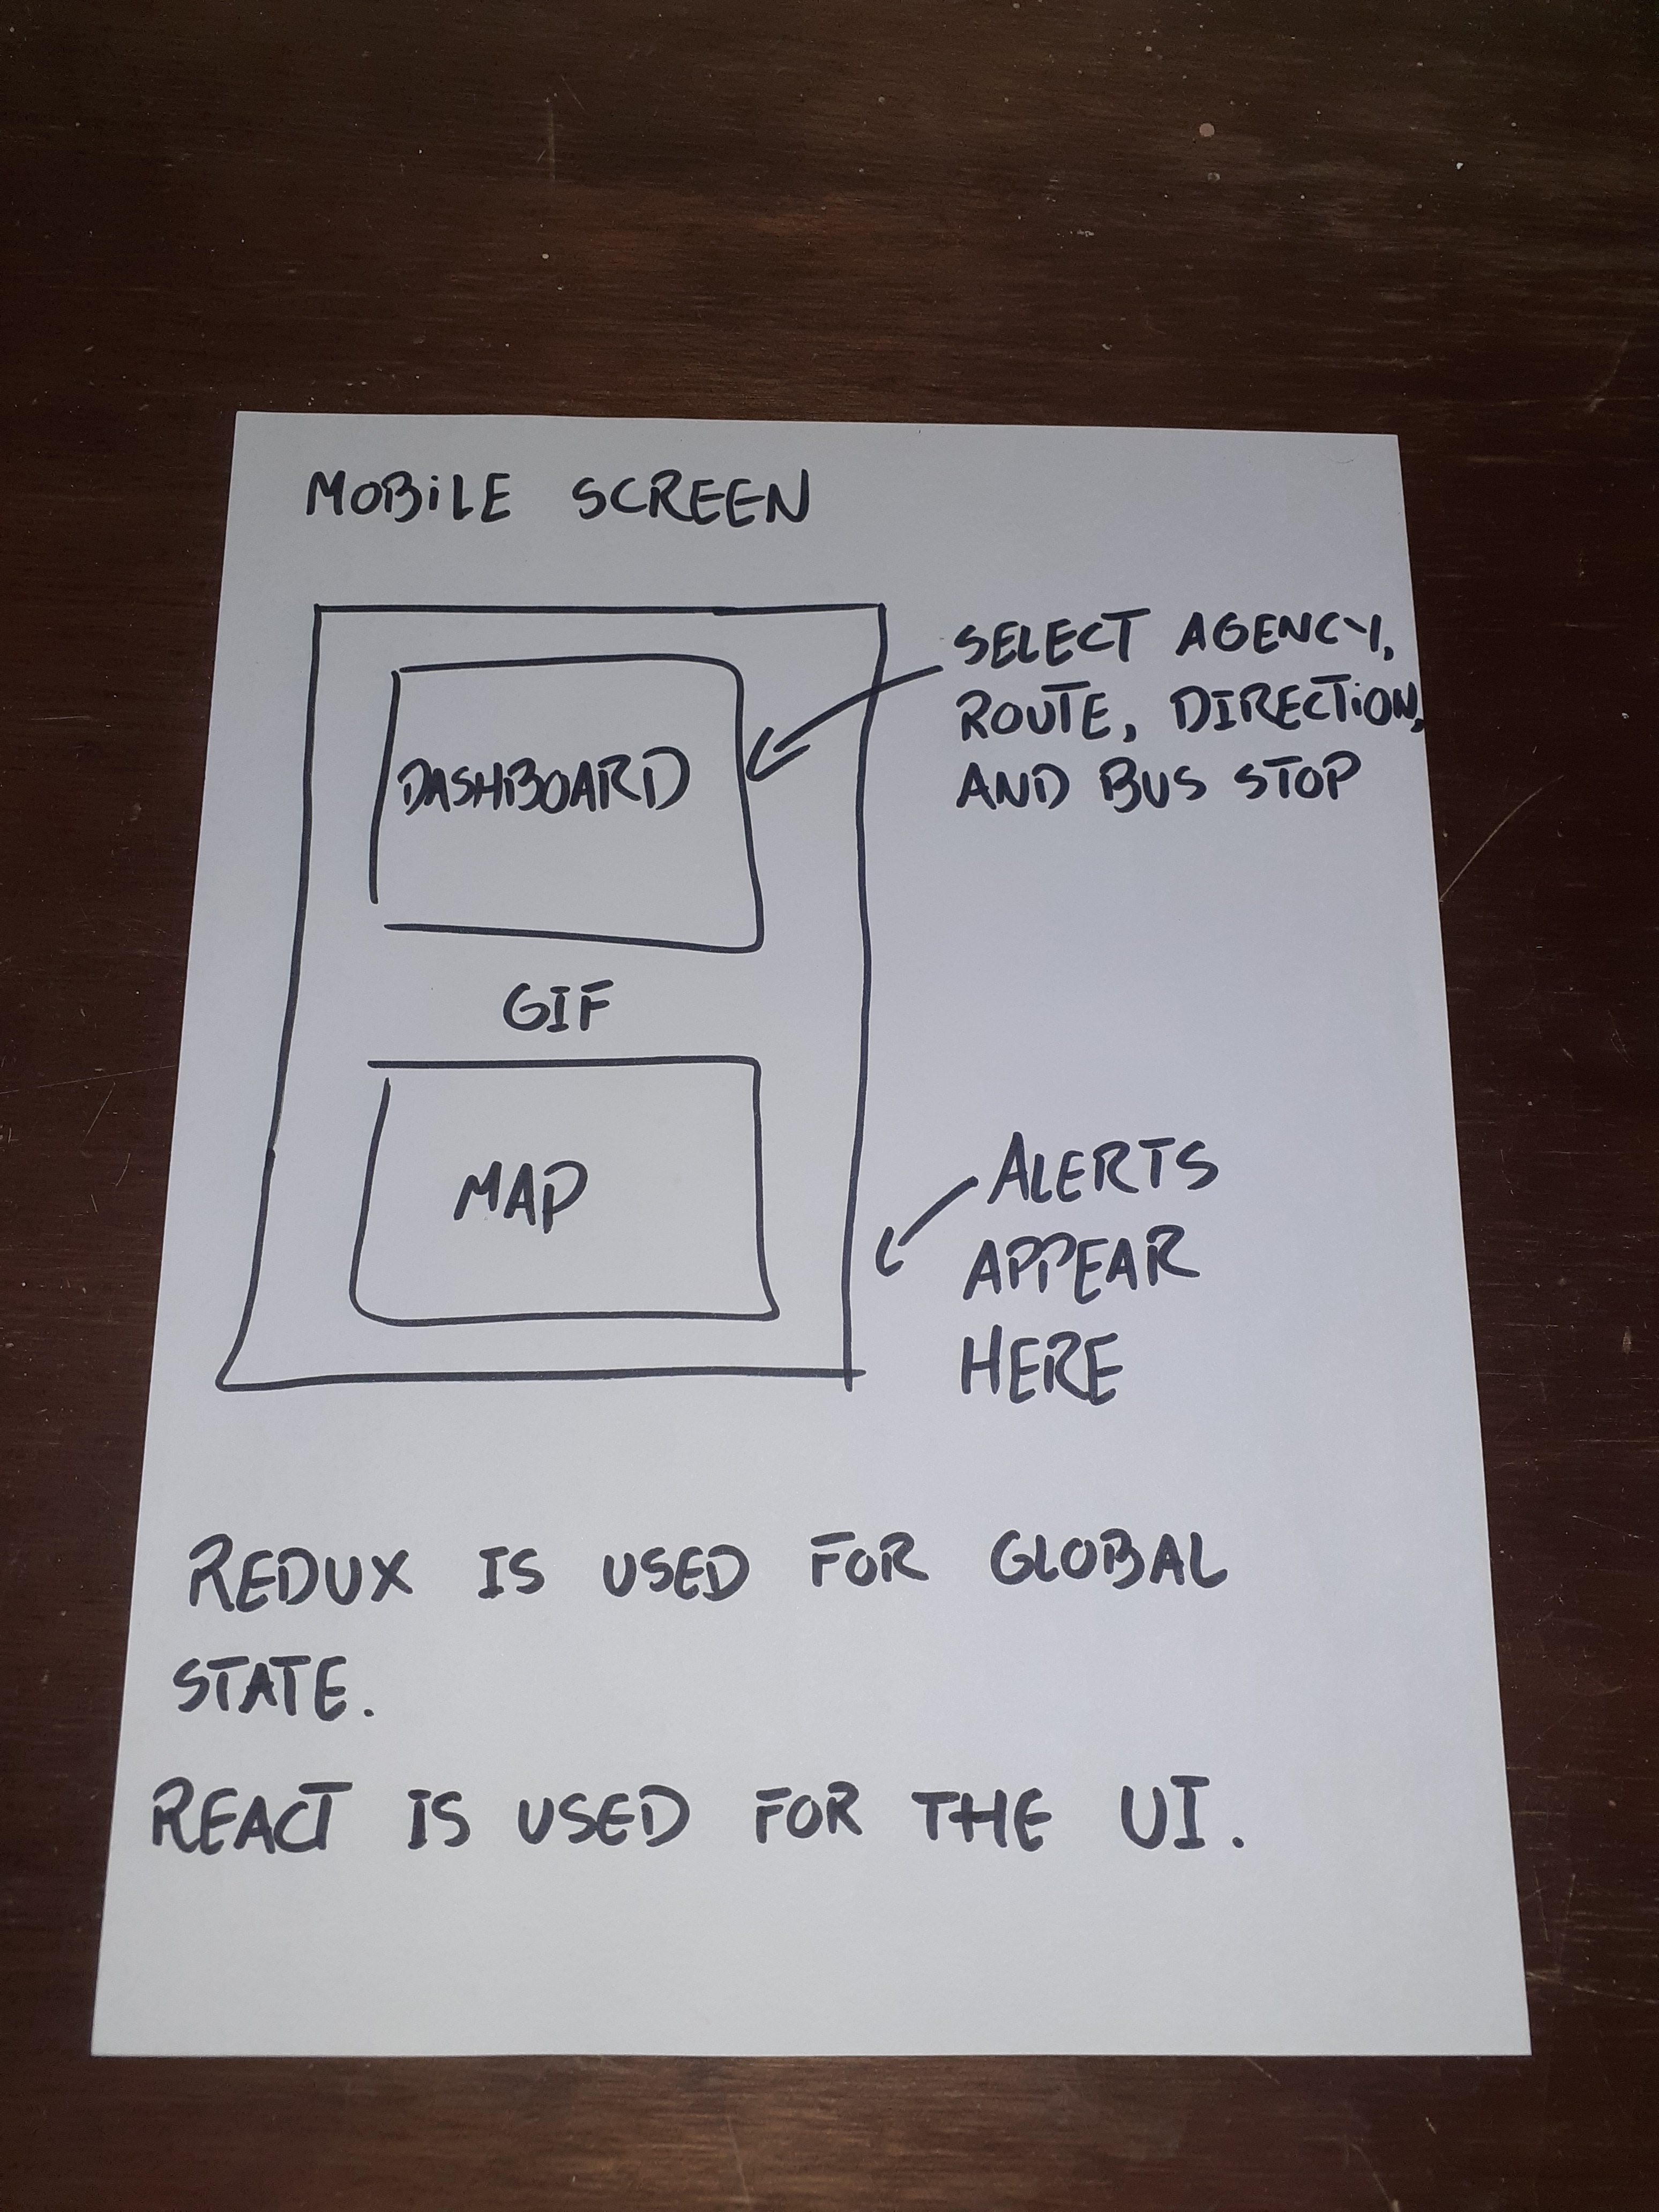 MOBiLE SCREEN
SELECT AGENCY,
ROUTE, DIRECTiON,
AND BUS STOP
DASHBOARD
GIF
MAP
ALERTS
APPEAR
HERE
REDUX IS USED FOR GLOBAL
STATE.
REACT IS USED FOR THE UI.